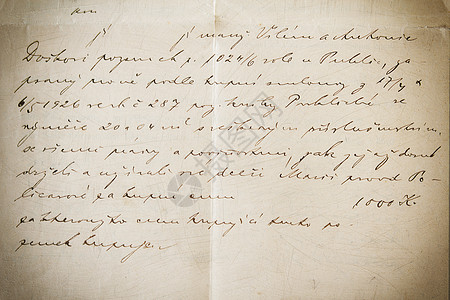 já já manž. Vilém a Antonie
Doškovi pozemek p. 1024/6 role v Puklic, za-
psaný mě podle kupní smlouvy z 17/4
6/5 1926 ve vl. č 287 poz. knihy Puklické ve
výměře 2004 m² s veškerým příslušenstvím,
se všemi právy a povinnostmi, jak jej až dosud
drželi a užívali své dceři Marii provd.
za kupní cenu 1000 K.
za kteroužto cenu kupující tento po-
zemek kupuje.